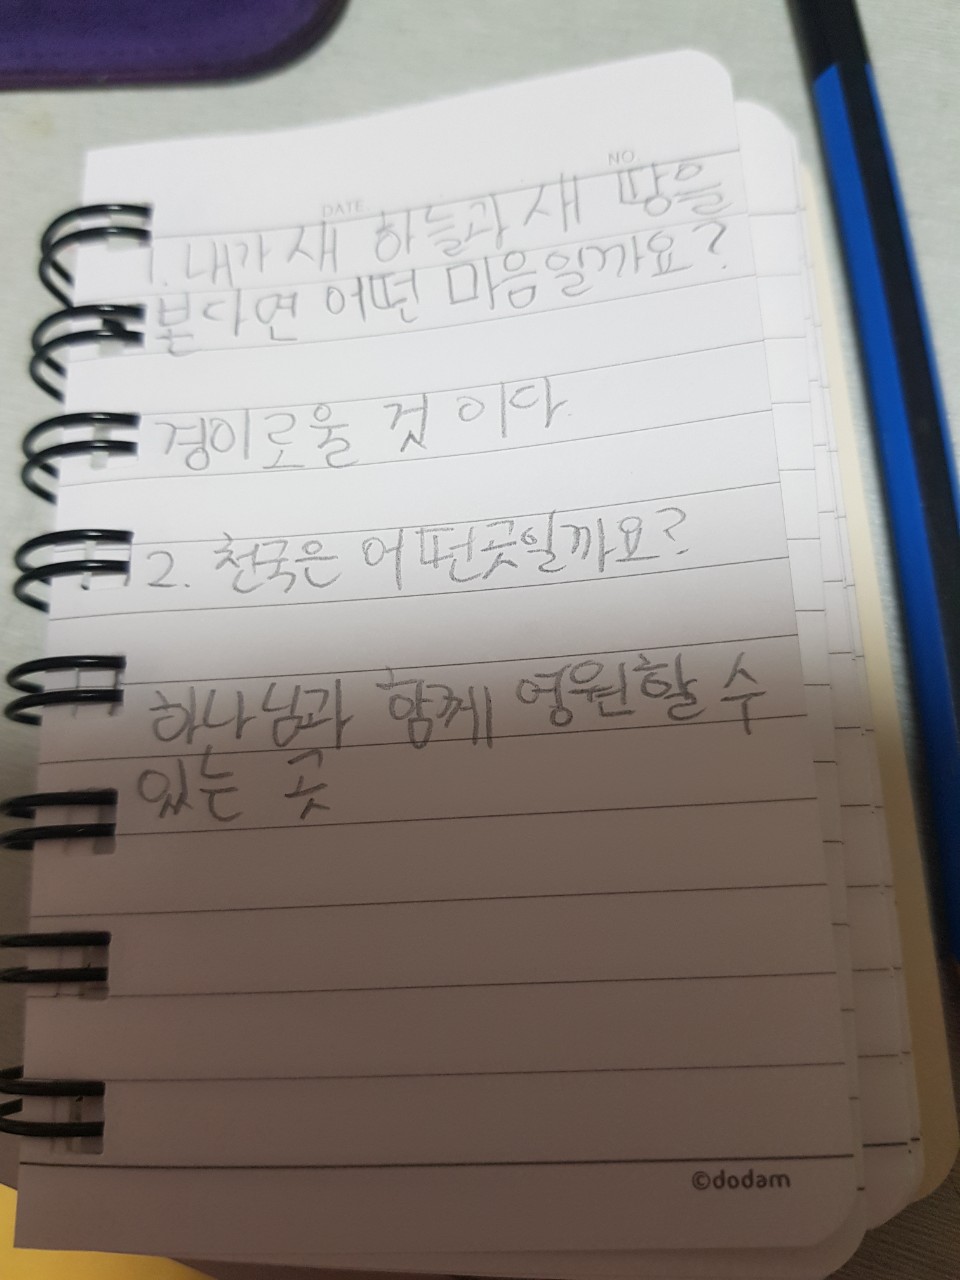 NO.
DATE.
1. 내가 새 하늘과 새 땅을
본다면 어떤 마음일까요?
경이로울 것 이다
2. 천국은 어떤곳일까요?
하나님과 함께 영원할 수
있는 곳
©dodam